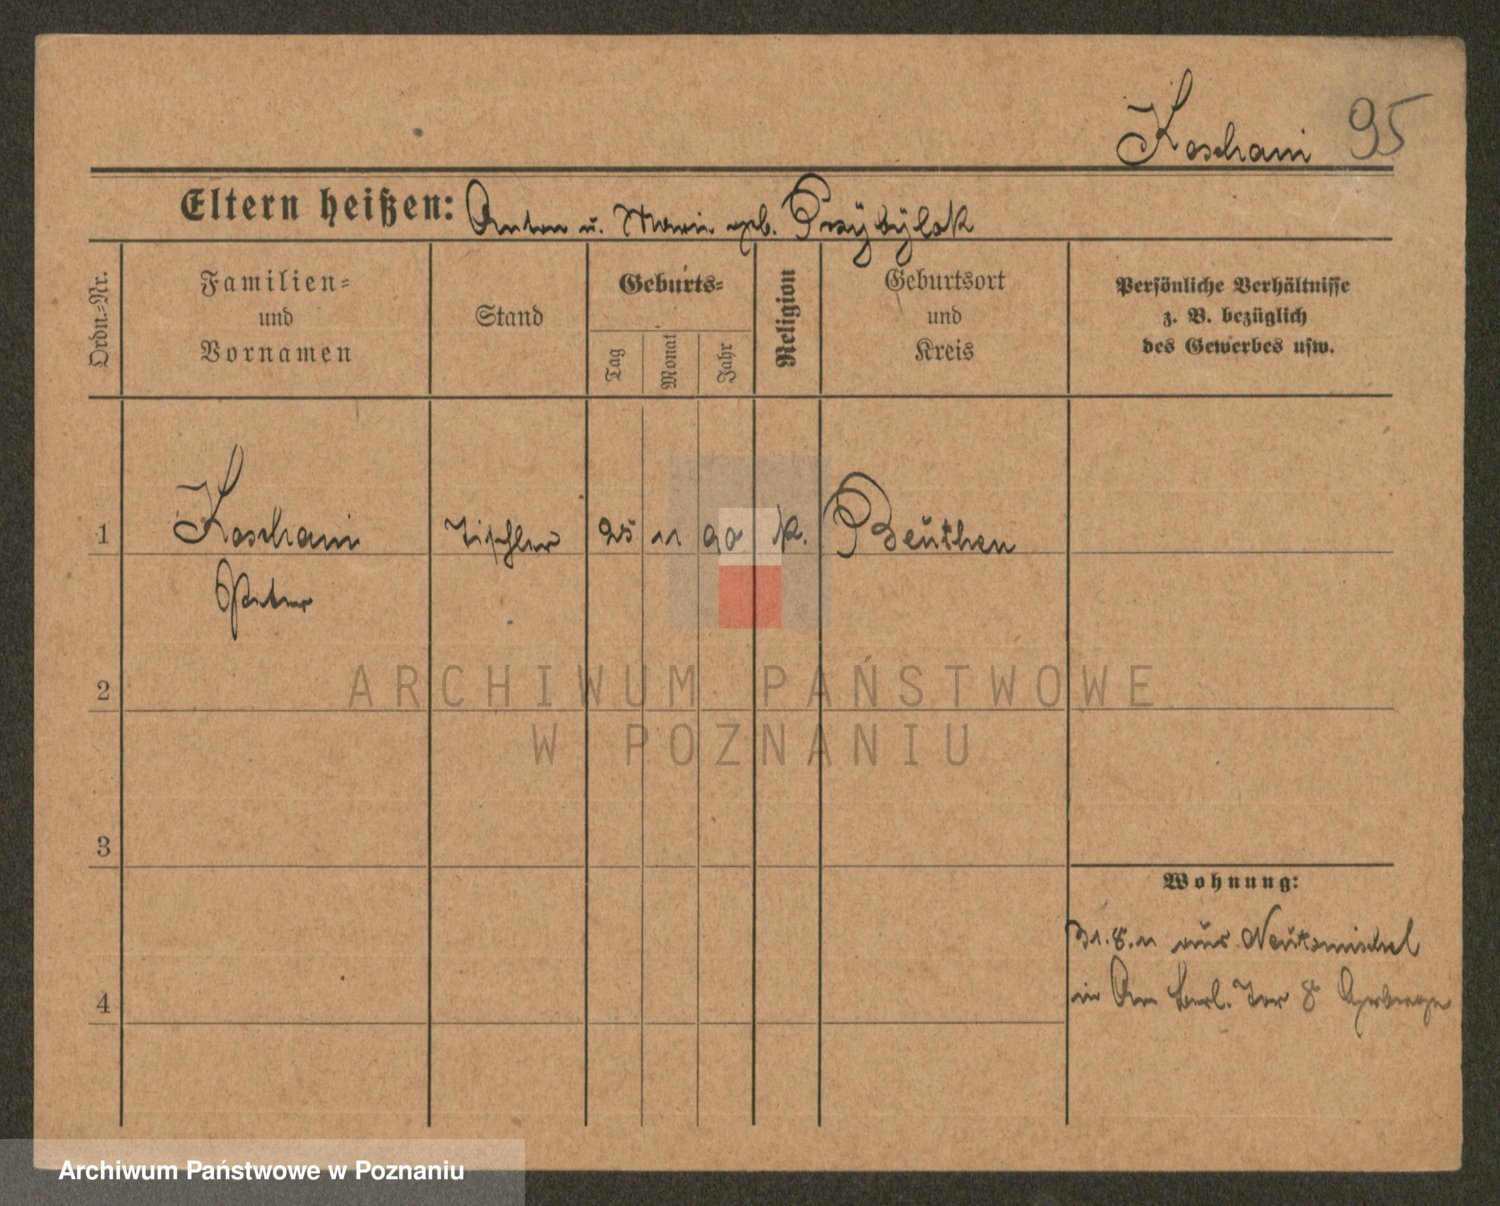 Koschani 95
Eltern heißen: Anton u. Marie geb. Przÿbÿlok
Ordn.-Nr.
Familien-
und
Vornamen
Stand
Geburts-
Tag
Monat
Jahr
Religion
Geburtsort
und
Kreis
Persönliche Verhältnisse
z. B. bezüglich
des Gewerbes usw.
1 Koschani Tischler 25 11 90 k. Beuthen
Peter
2
3
4
Wohnung:
31.8.11 aus Neutomischel
in Am Berl. Tor 8
ARCHIWUM PAŃSTWOWE
W POZNANIU
Archiwum Państwowe w Poznaniu